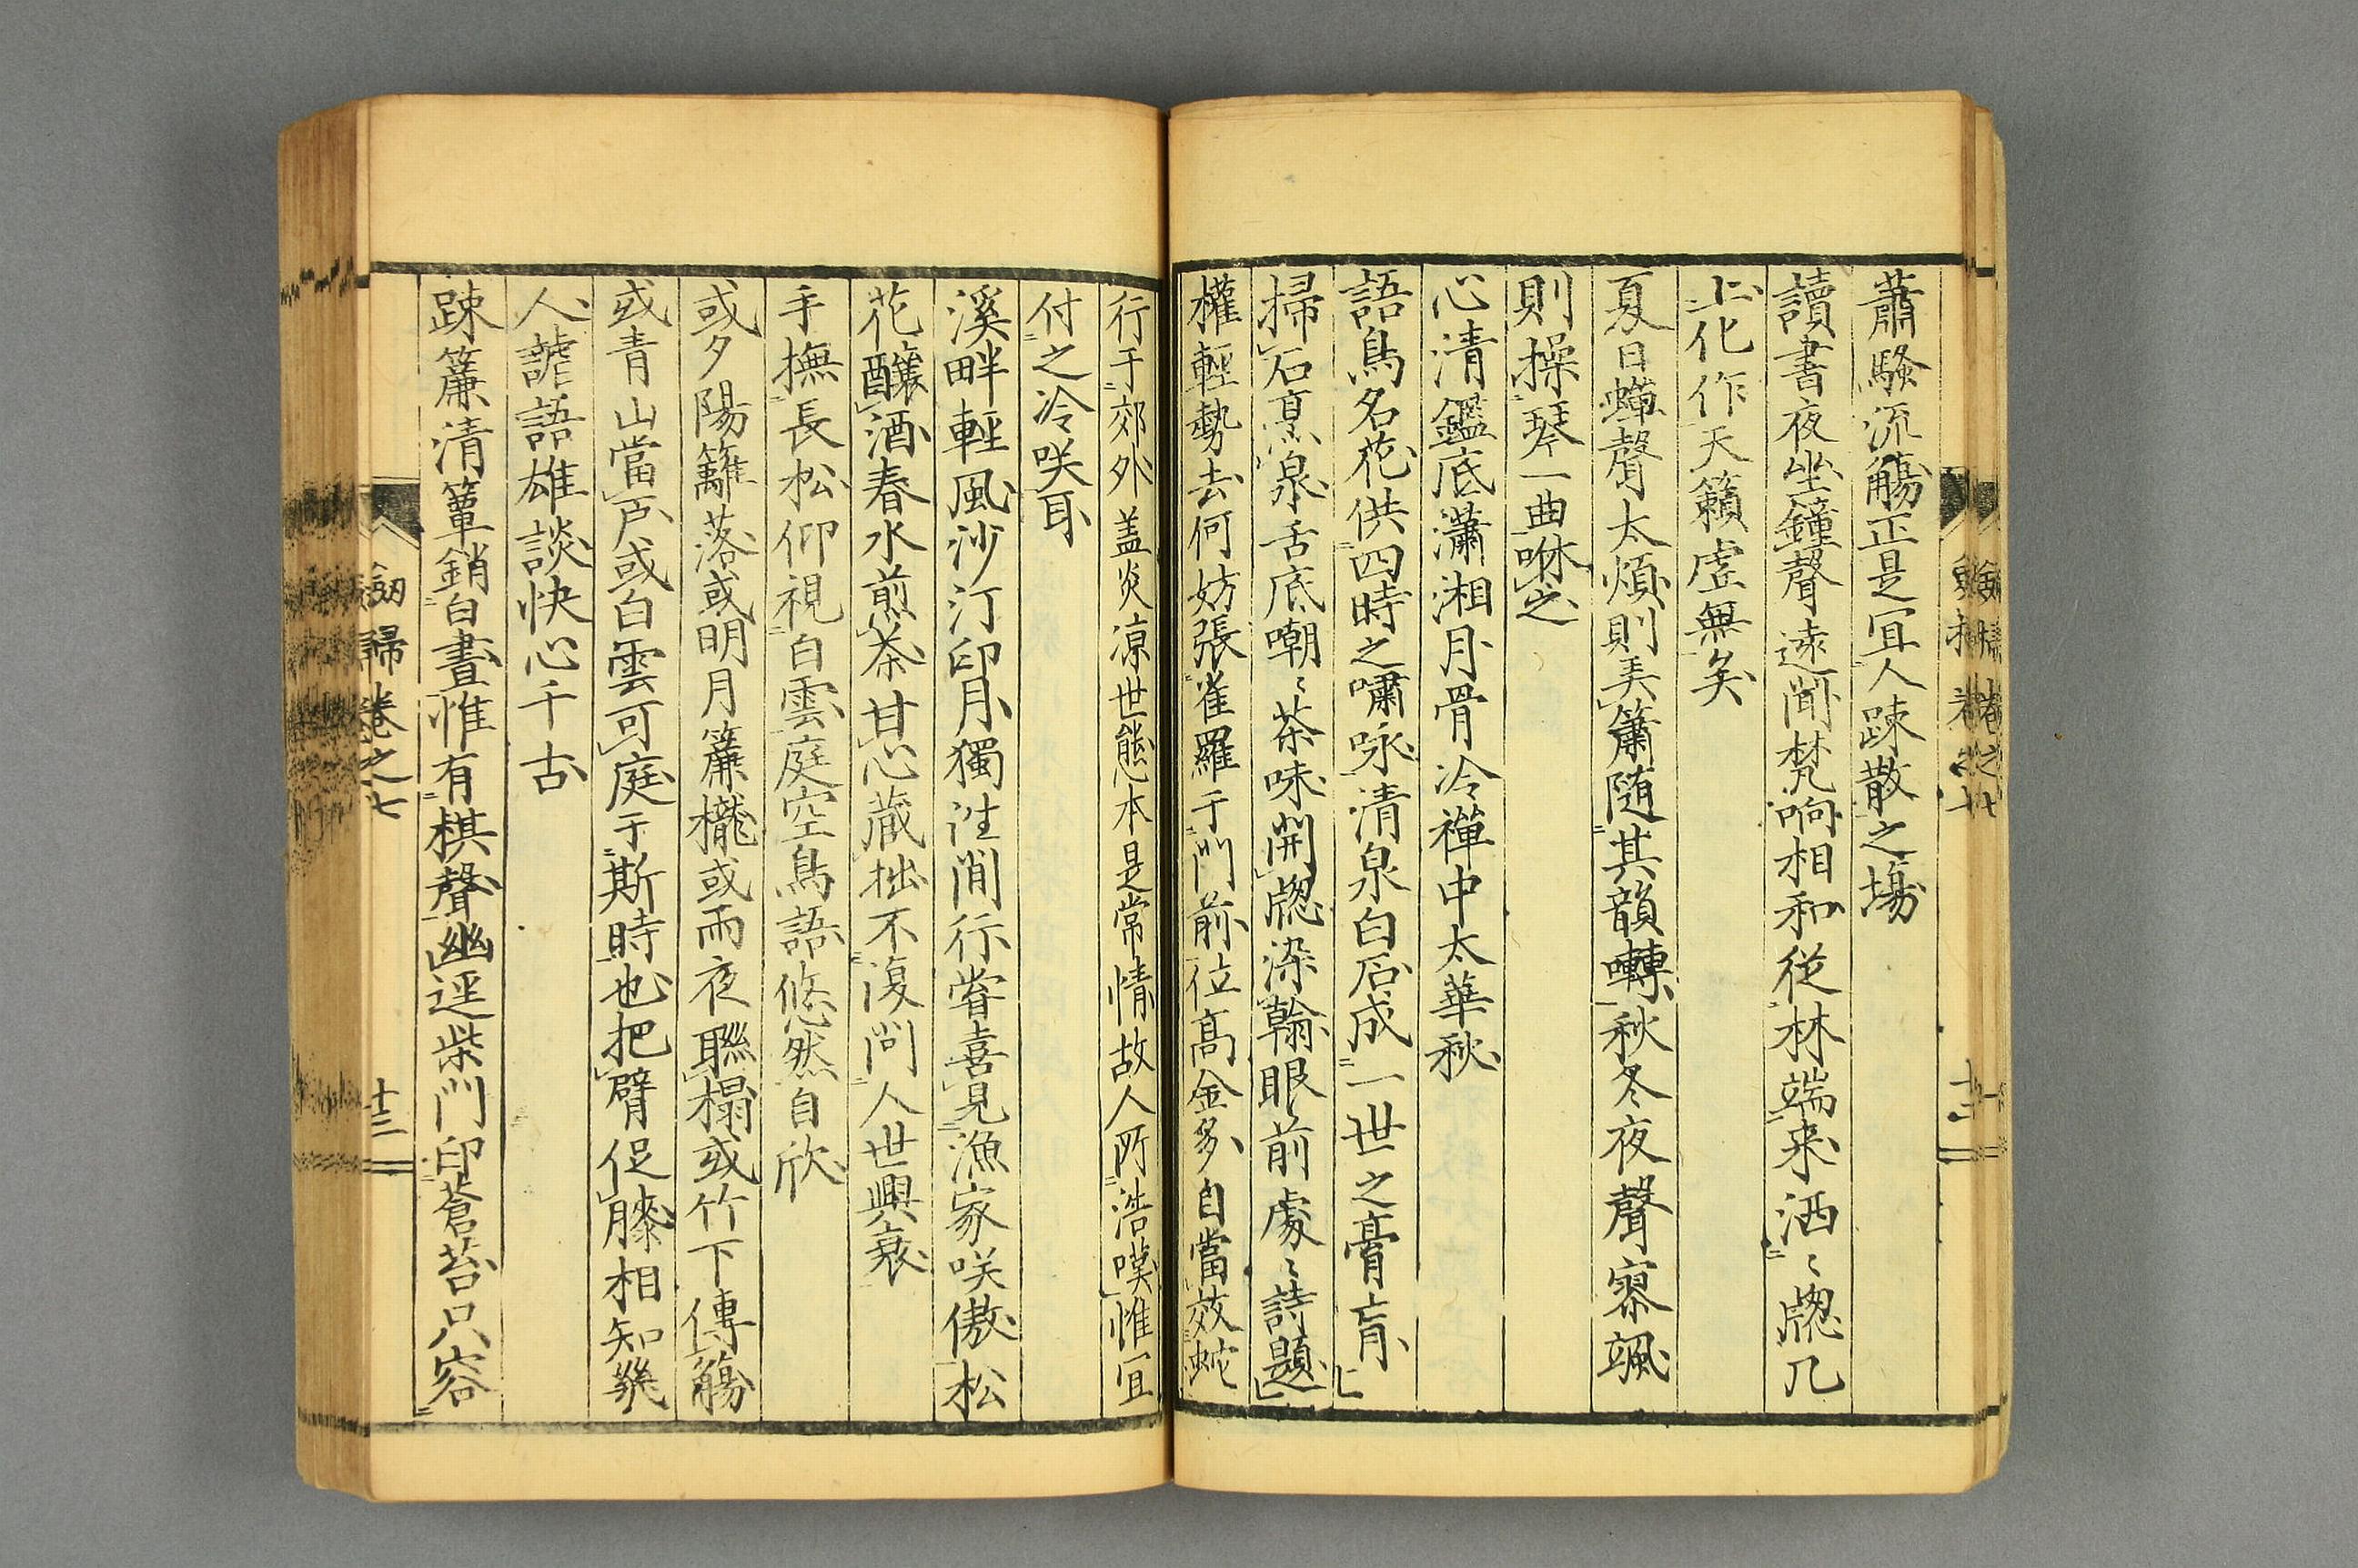 蕭騷流觴正是冝人踈散之塲
讀書夜坐鐘聲遠聞梵响相和從林端来洒〻牎几
上化作天籟虛無矣
夏日蟬聲太煩則美簫随其韻轉秋冬夜聲寥颯
則操琴一曲咻之
心清鑑底瀟湘月骨冷禪中太華秋
語鳥名花供四時之嘯咏清泉白石成一世之膏肓
掃石烹泉舌底嘲〻茶味開牎染翰眼前處〻詩題
權輕勢去何妨張雀羅于門前位高金多自當效蛇
行于郊外盖炎凉世態本是常情故人所浩嘆惟冝
付之冷咲耳
溪畔輕風沙汀印月獨往閒行甞喜見漁家咲傲松
花釀酒春水煎茶甘心藏拙不復問人世興衰
手撫長松仰視白雲庭空鳥語悠然自欣
或夕陽籬落或明月簾櫳或雨夜聯榻或竹下傳觴
或青山當户或白雲可庭于斯時也把臂促膝相知幾
人謔語雄談快心千古
踈簾清簟銷白晝惟有棋聲幽逕柴門印蒼苔只容
劒掃卷之七
十三